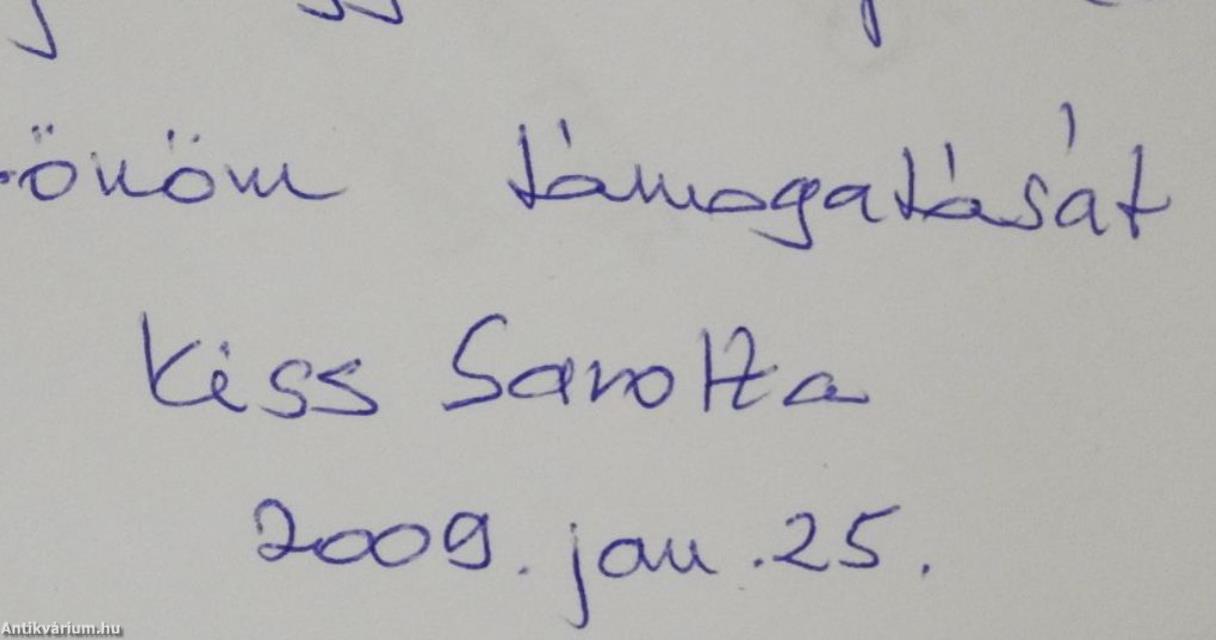 önöm támogatását
Kiss Sarolta
2009. jan. 25.
Antikvárium.hu